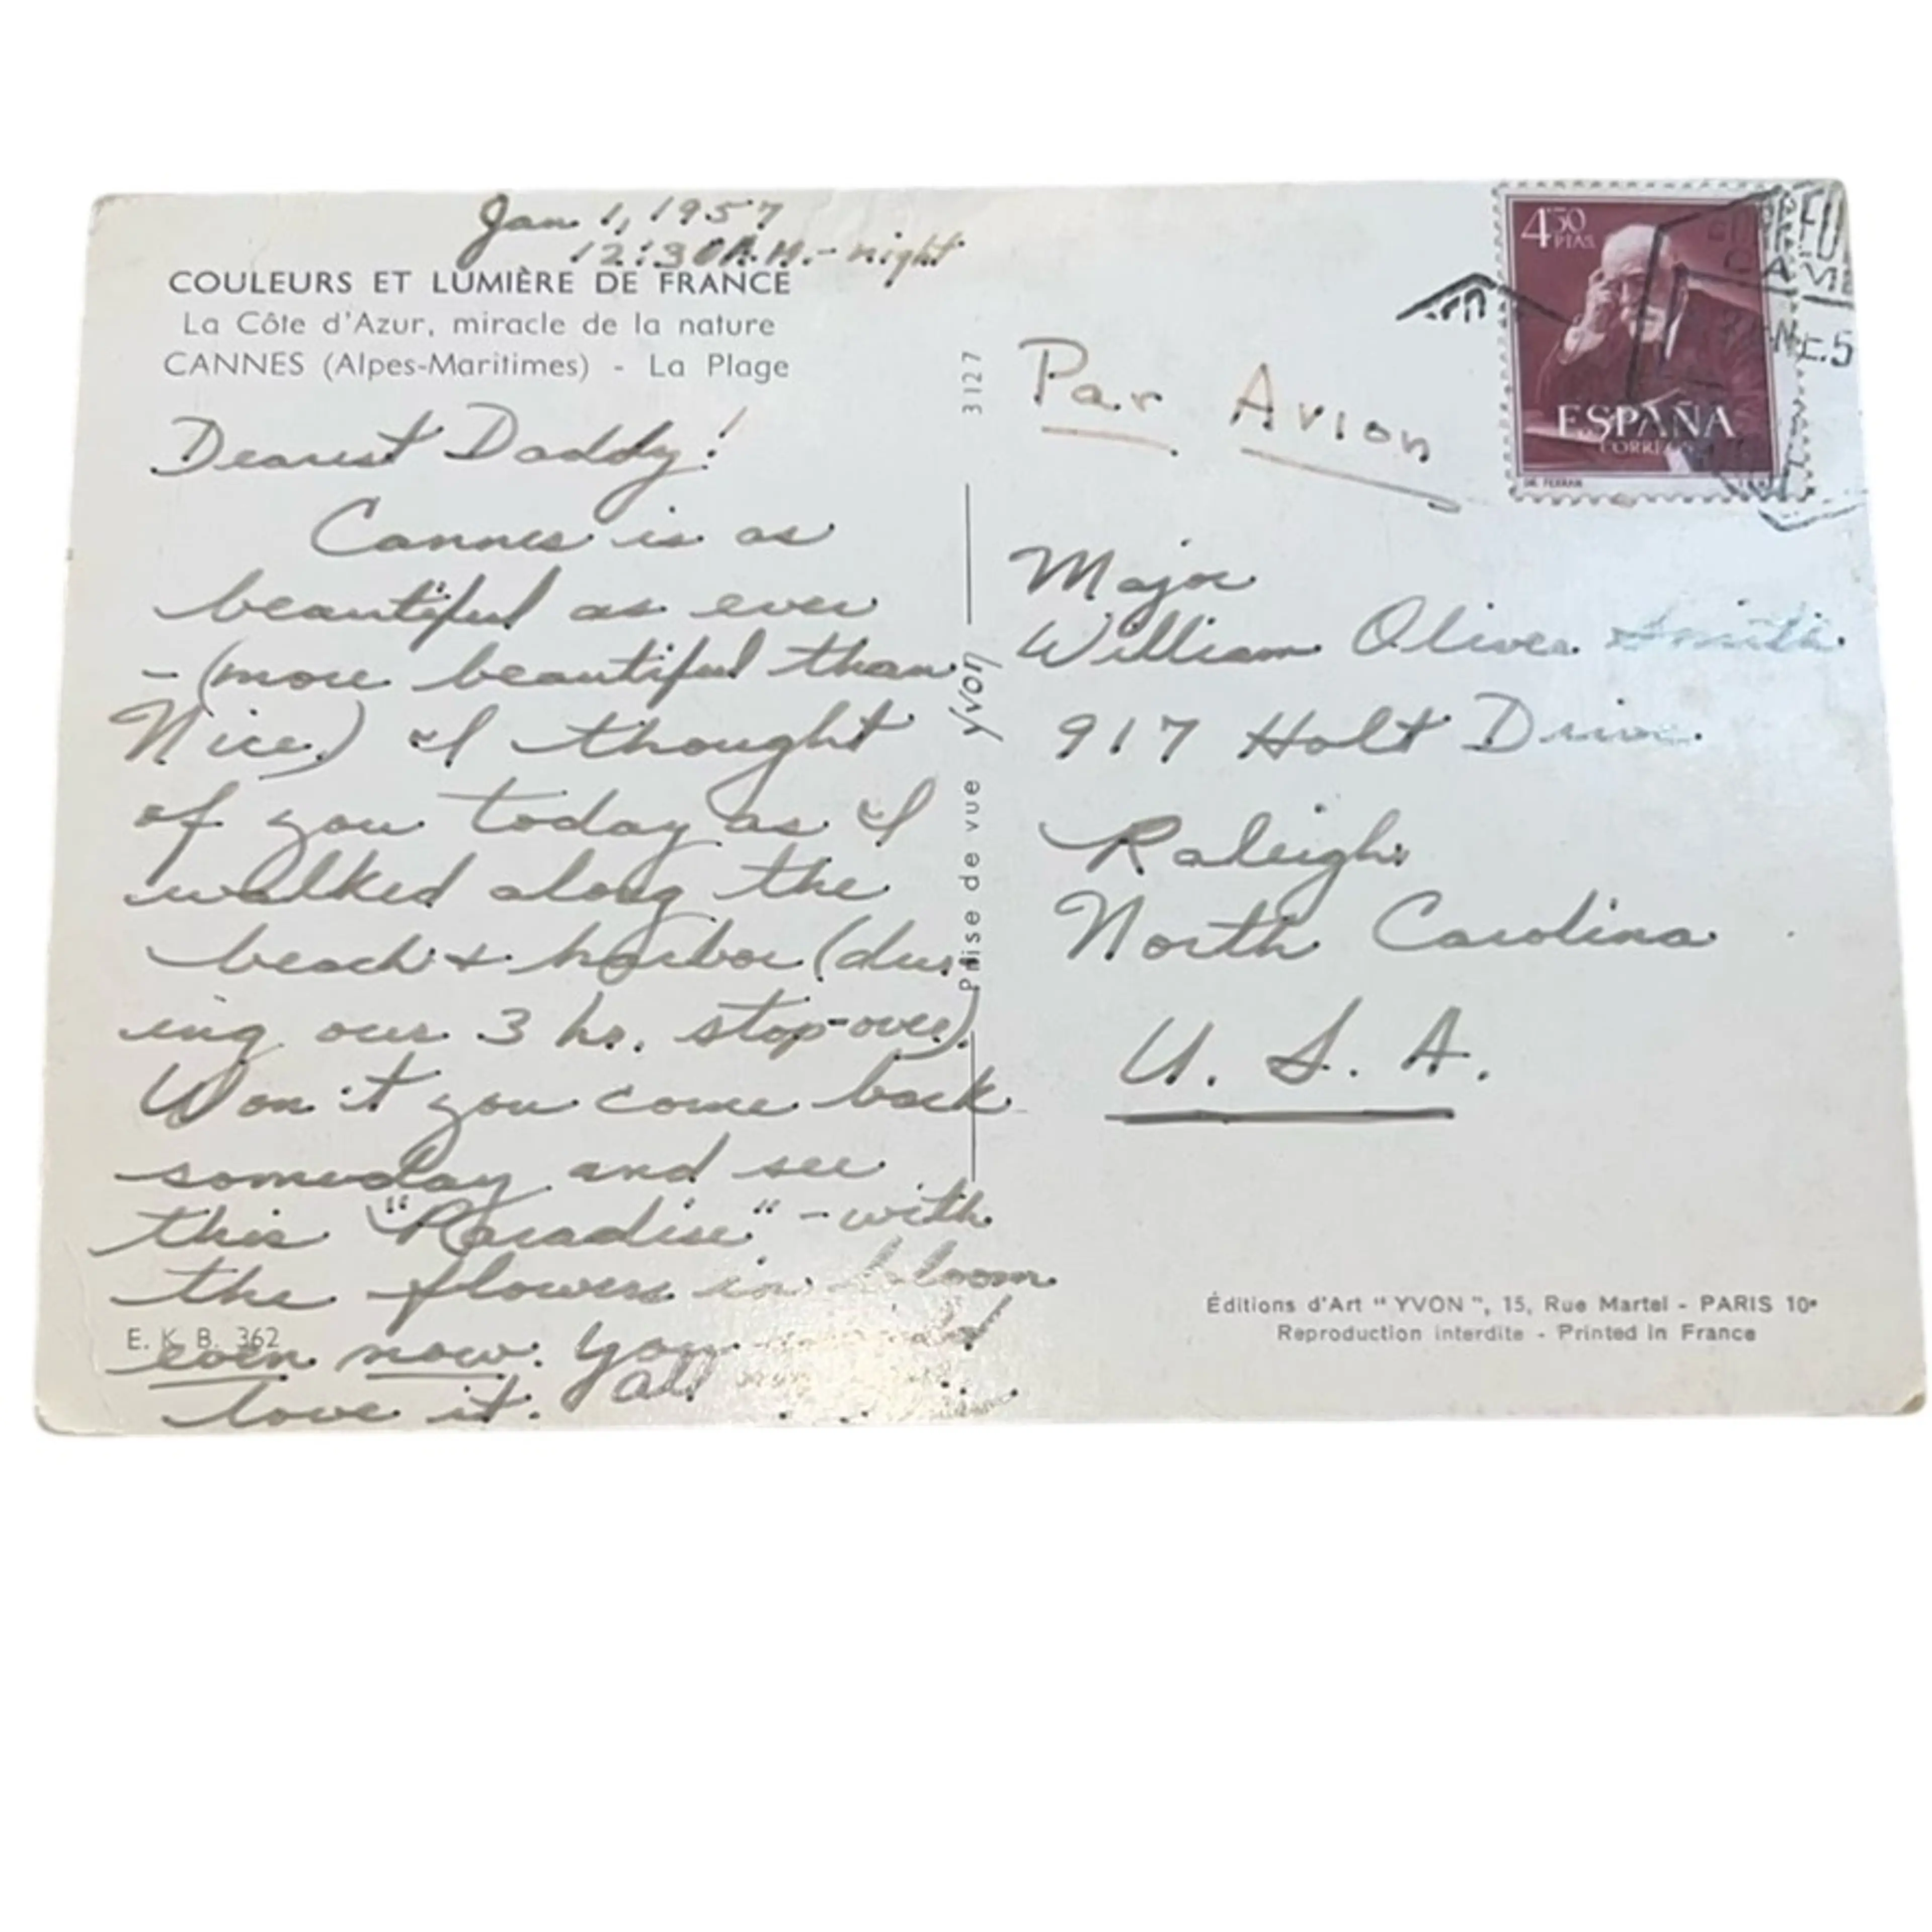 Jan 1, 1957
12:30 A.M. - night
COULEURS ET LUMIÈRE DE FRANCE
La Côte d'Azur, miracle de la nature
CANNES (Alpes-Maritimes) - La Plage
Dearest Daddy!
Cannes is as
beautiful as ever
- (more beautiful than
Nice.) I thought
of you today as I
walked along the
beach & harbor (dur-
ing our 3 hr. stop-over).
Won't you come back
someday and see
this "Paradise" - with
the flowers in bloom
even now. You
love it. all
E. K. B. 362
3127
Prise de vue Yvon
Par Avion
4'50
PTAS.
ESPAÑA
CORREOS
DR. FERRAN
Major
William Oliver Smith
917 Holt Drive
Raleigh
North Carolina
U. S. A.
Éditions d'Art "YVON", 15, Rue Martel - PARIS 10e
Reproduction interdite - Printed in France